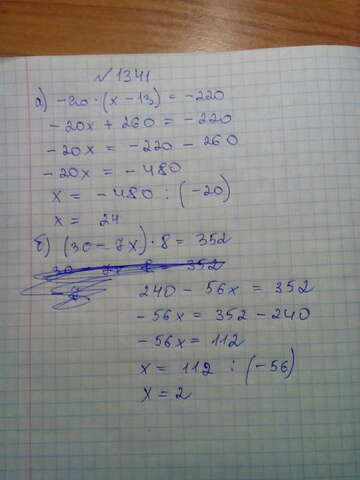 №1341
а) -20·(x-13) = -220
-20x + 260 = -220
-20x = -220 - 260
-20x = -480
x = -480 : (-20)
x = 24
б) (30-7x)·8 = 352
240 - 56x = 352
-56x = 352 - 240
-56x = 112
x = 112 : (-56)
x = 2